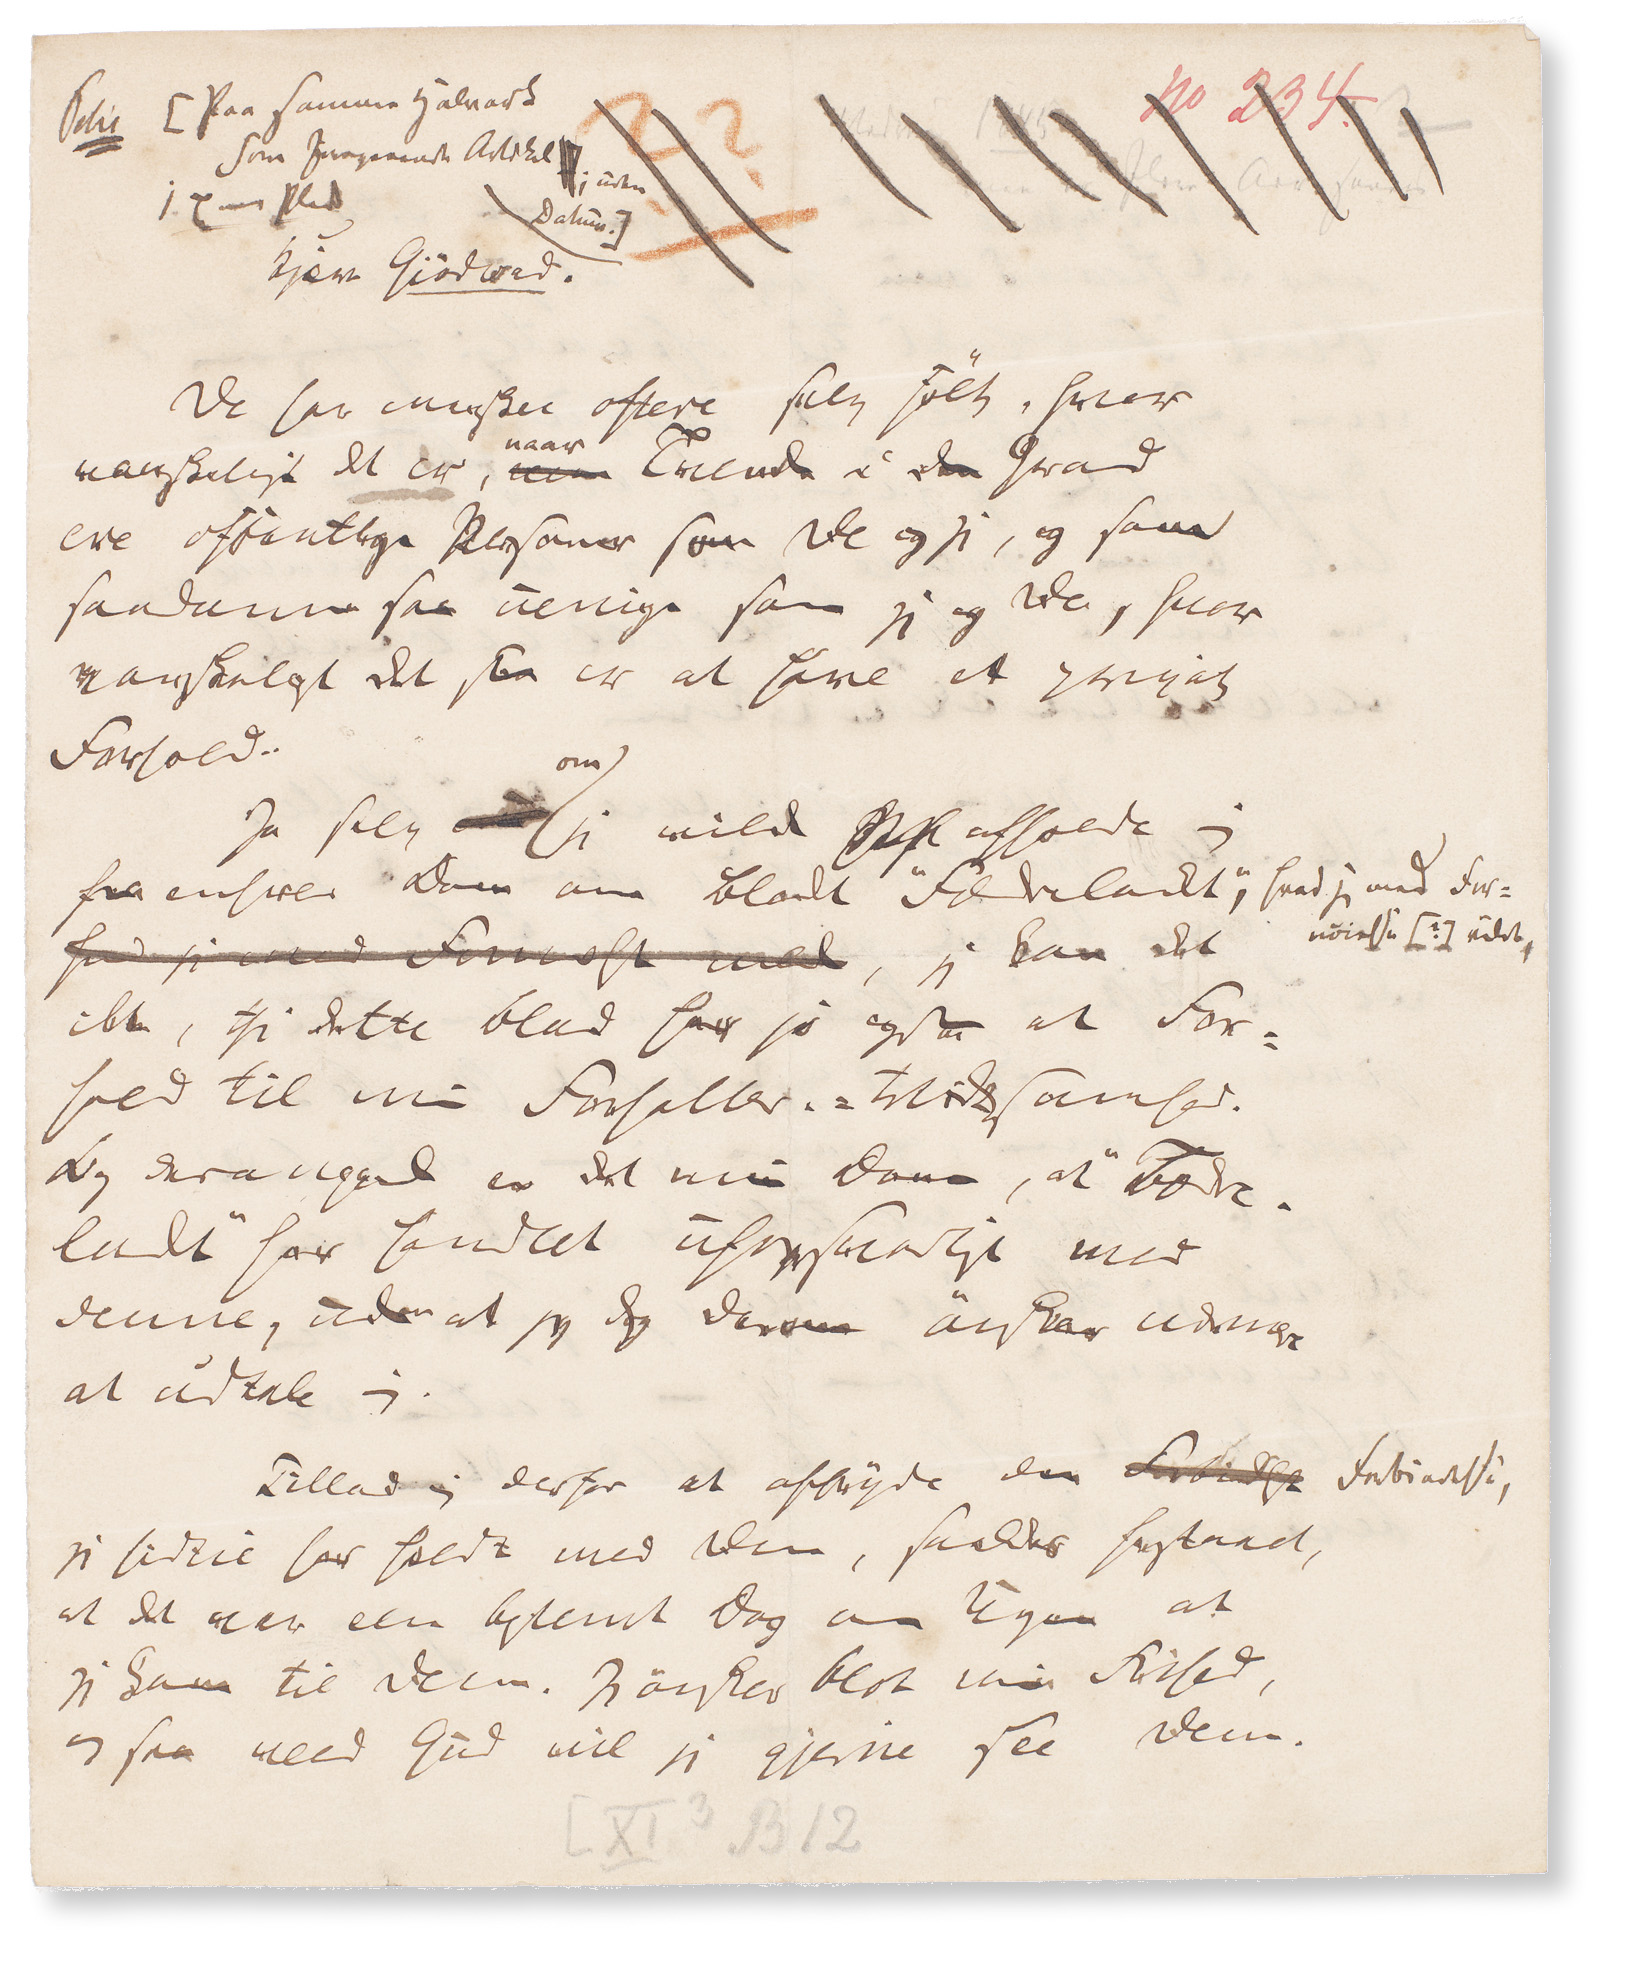 [Paa samme halvark
som foregaaende Artikel
; uden
Datum.]
No 234.
??
Kjere Giödwad.
De har maaskee oftere selv følt, hvor
vanskeligt det er, naar Tvende i den Grad
ere offentlige Personer som De og jeg, og som
saadanne saa uenige som jeg og De, hvor
vanskeligt det saa er at have et privat
Forhold.
Ja selv om jeg vilde afholde mig
fra enhver Dom om Bladet "Fædrelandet", hvad jeg med For=
nöielse [?] vilde,
jeg kan det
ikke, thi dette Blad har jo ogsaa et For=
hold til min Forfatter-Virksomhed.
Og desangaaende er det min Dom, at "Fædre-
landet" har handlet uforsvarligt mod
denne, uden at jeg dog derom ønsker videre
at udtale mig.
Tillad mig derfor at afbryde den Forbindelse,
jeg hidtil har holdt med Dem, saaledes forstaaet,
at det var een bestemt Dag om Ugen at
jeg kom til Dem. Jeg ønsker blot min Frihed,
og saa veed Gud vil jeg gjerne see Dem.
[XI 3 B 12